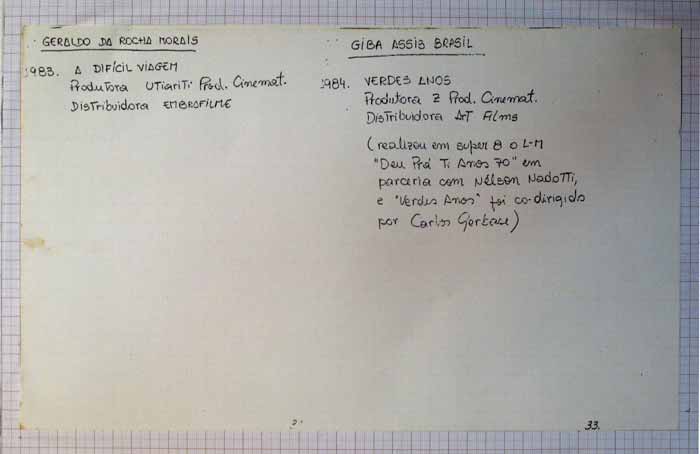 GERALDO DA ROCHA MORAIS
1983. A DIFÍCIL VIAGEM
Produtora UTiariTi Prod. Cinemat.
DisTribuidora EMBROFILME
GIBA ASSIS BRASIL
1984. VERDES ANOS
Produtora Z Prod. Cinemat.
DisTribuidora ArT Films
(realizou em super 8 o L-M
"Deu Prá Ti Anos 70" em
parceria com Nélson NadoTTi,
e "Verdes Anos" foi co-dirigido
por Carlos Gerbase)
33.